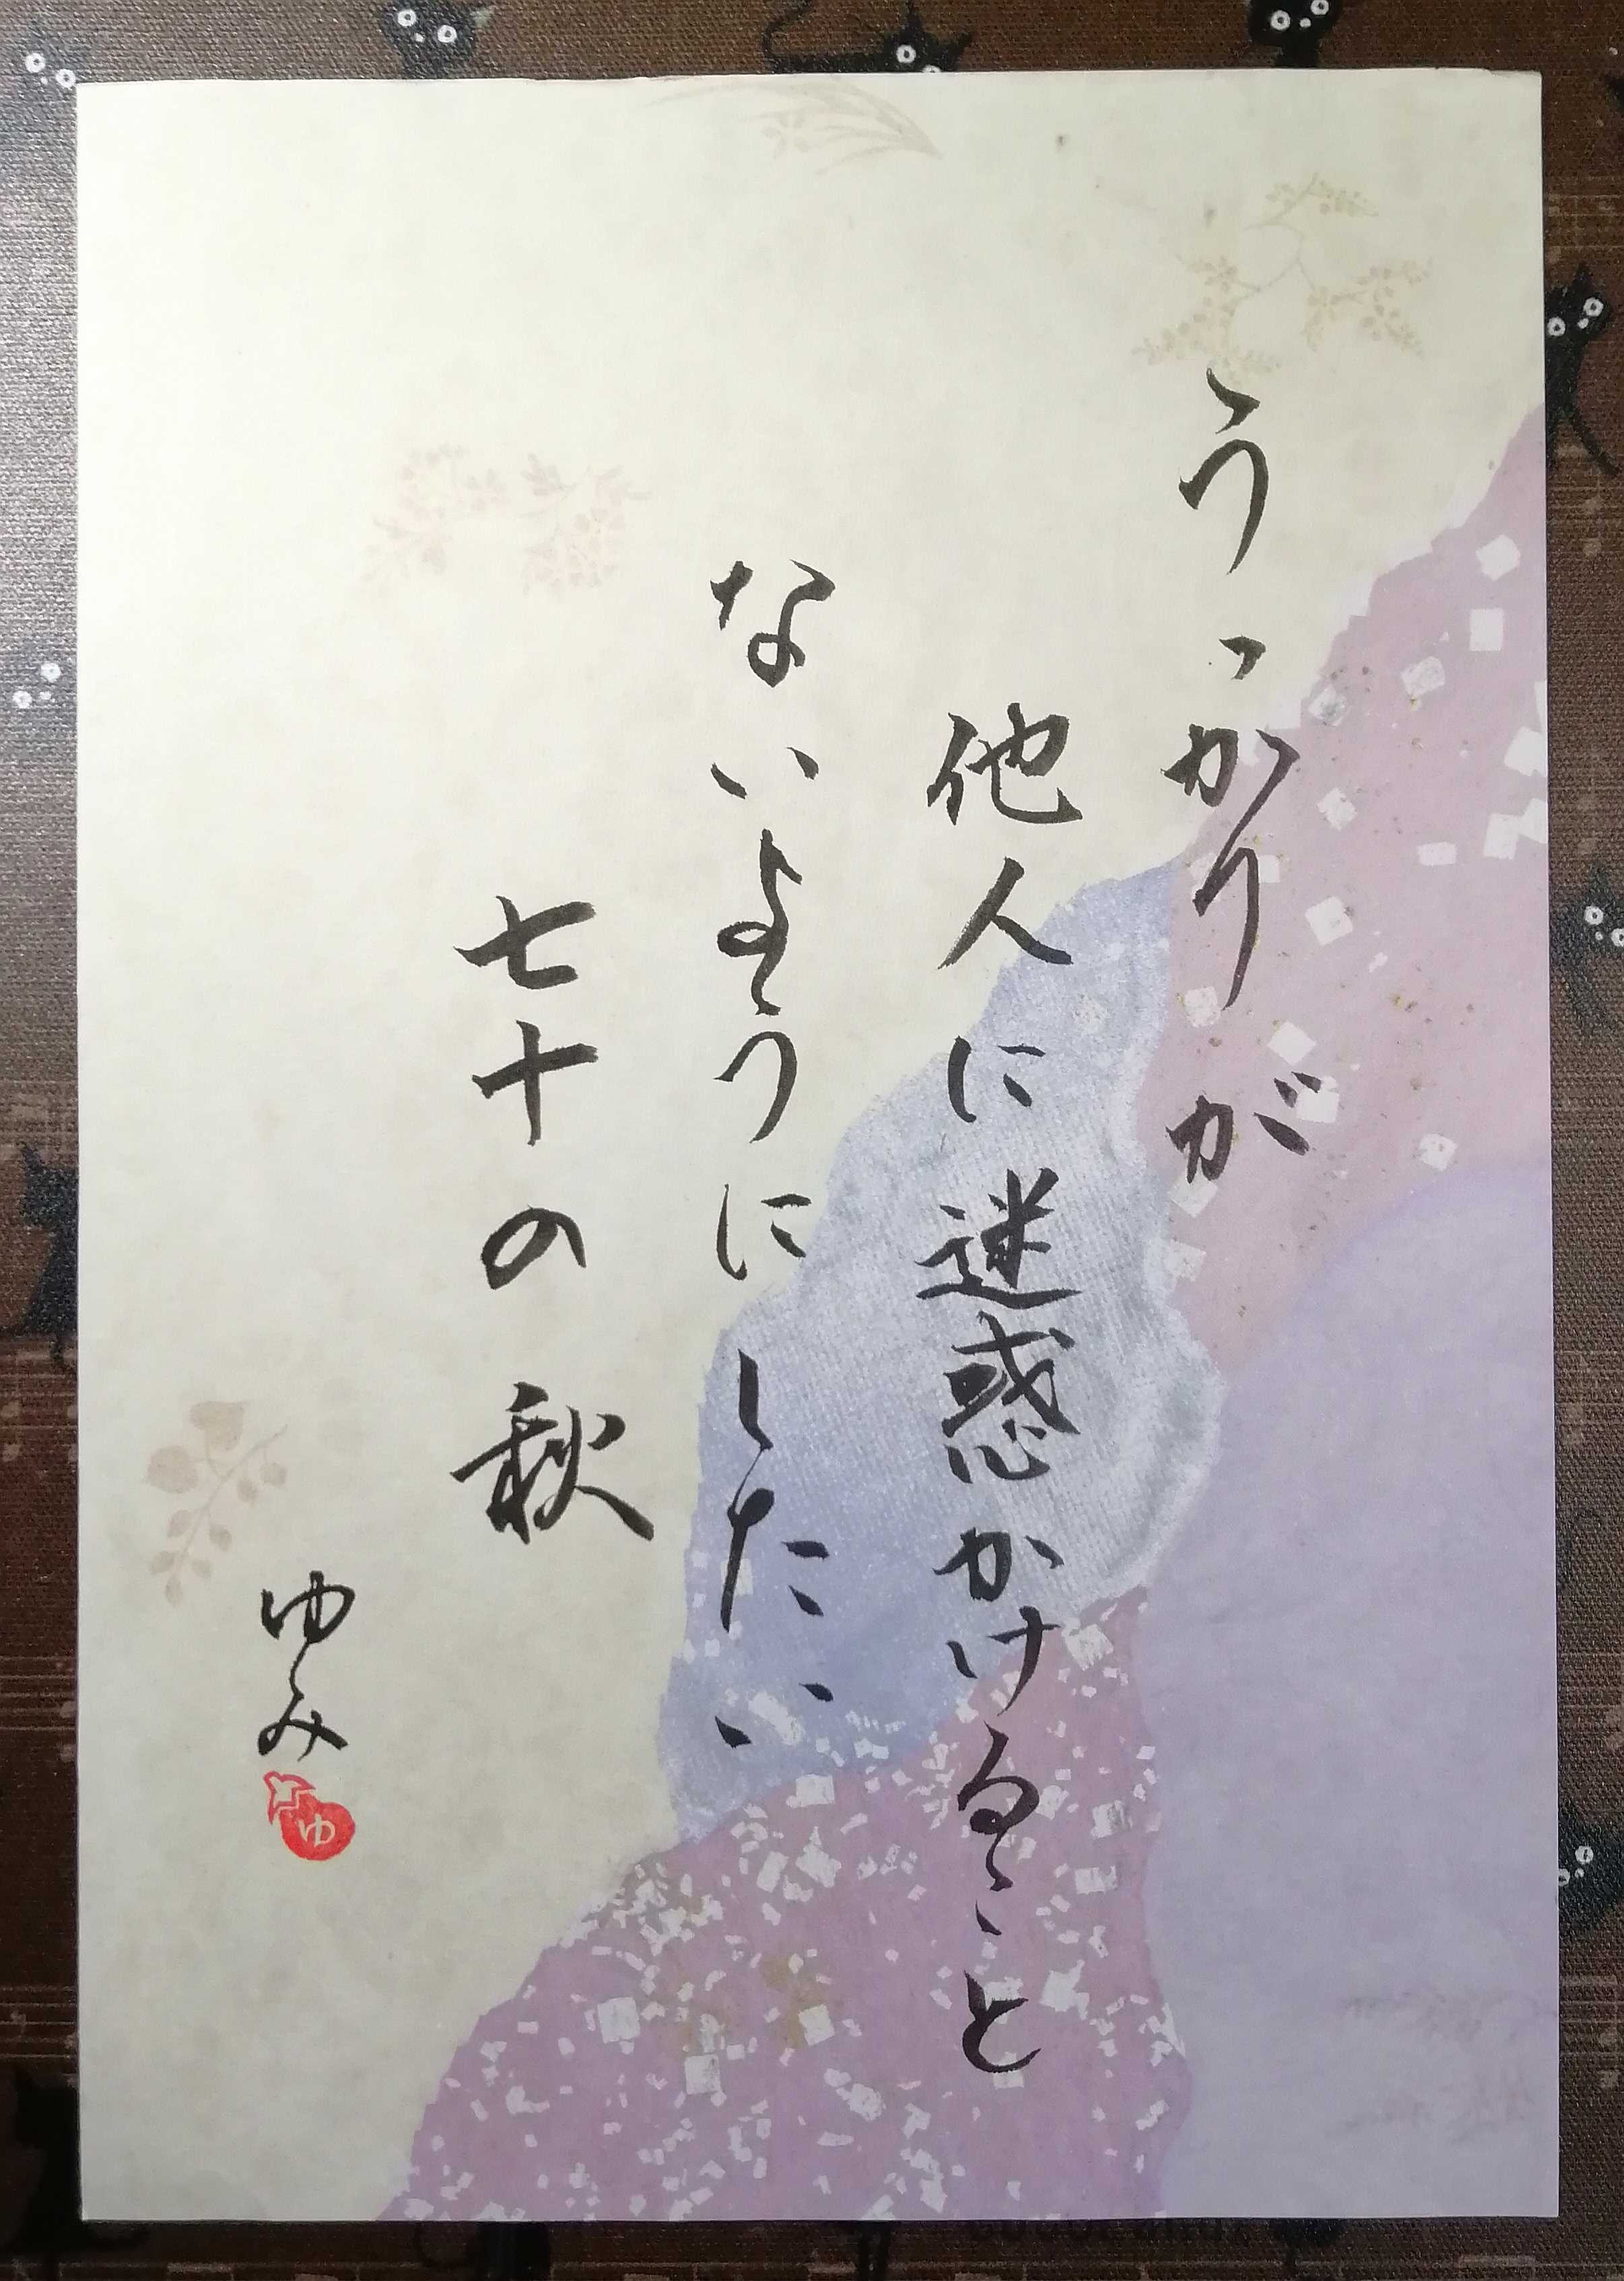 うっかりが
他人に迷惑かけること
ないようにしたい
七十の秋
ゆみ
ゆ